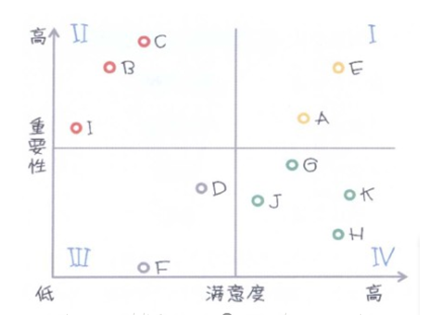 高 II I
C
B E
A
重要性 I
G
D J K
H
III F IV
低 满意度 高